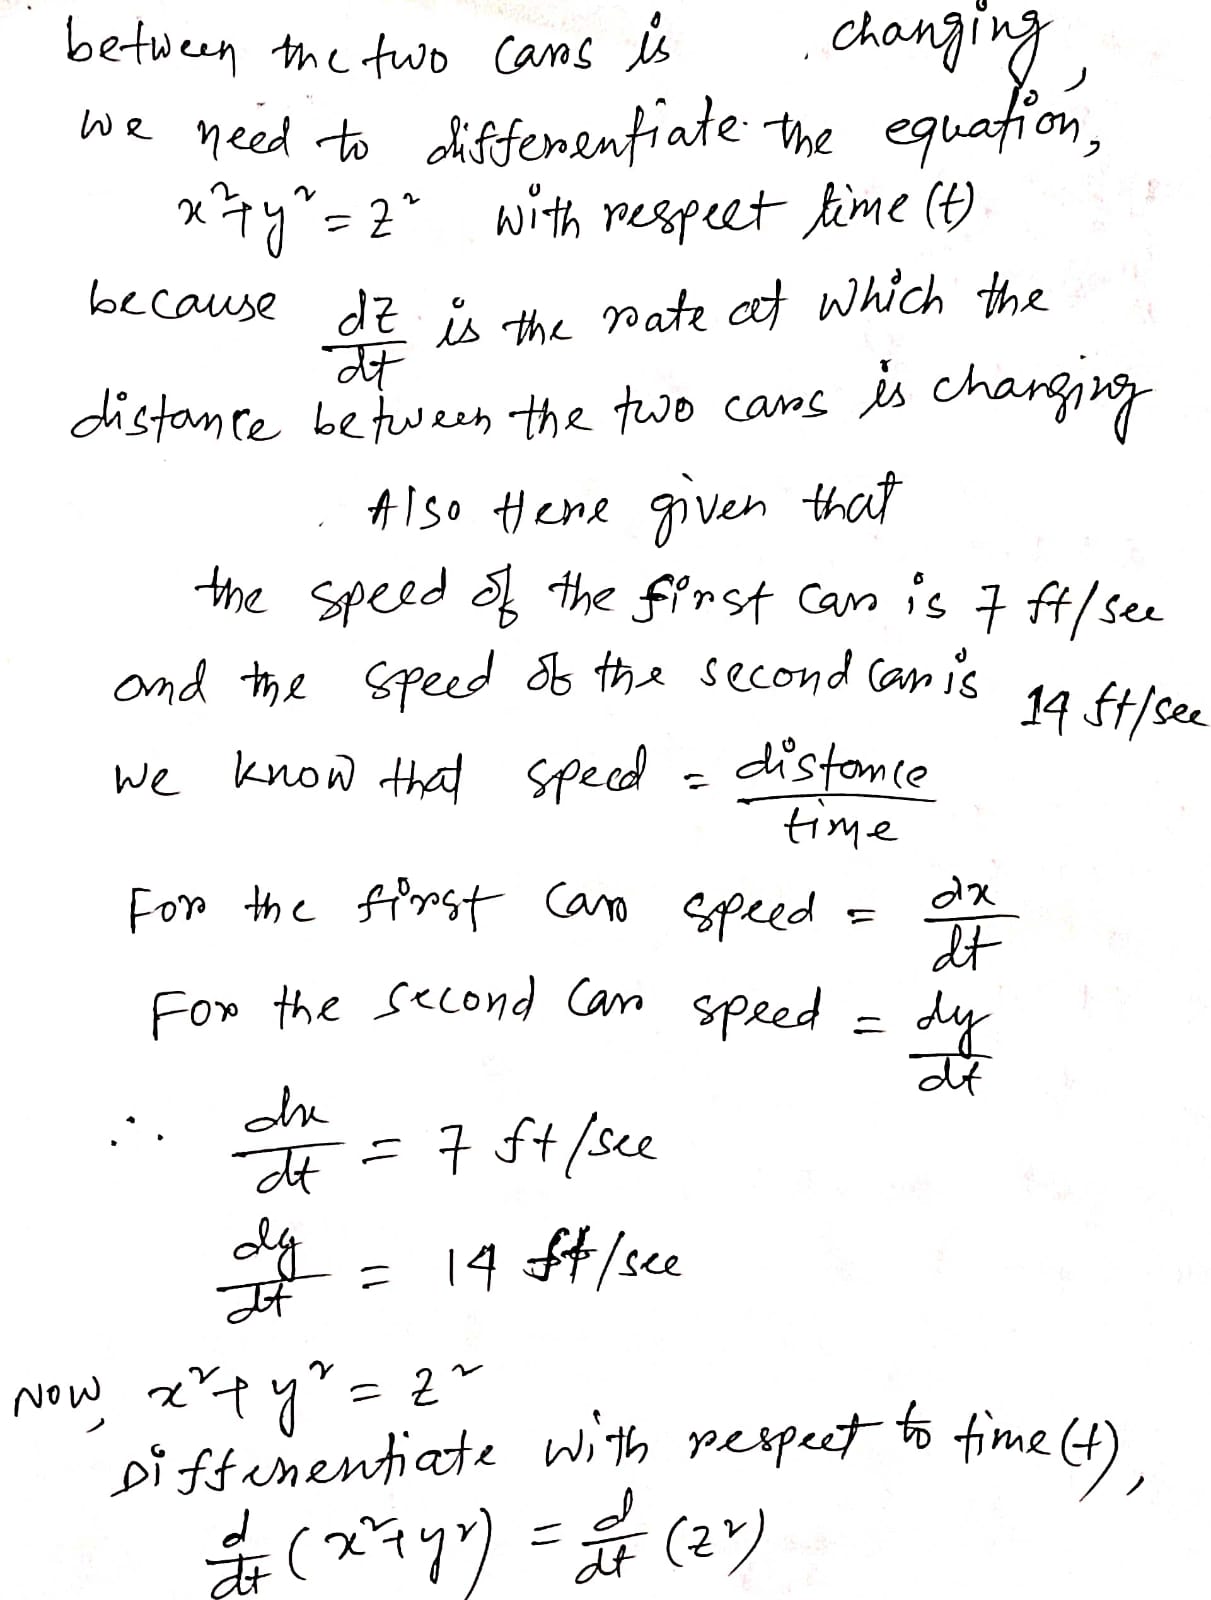 between the two cars is changing,
we need to differentiate the equation,
x²+y²=z² with respect time (t)
because dz/dt is the rate at which the
distance between the two cars is changing
Also Here given that
the speed of the first car is 7 ft/sec
and the speed of the second car is 14 ft/sec
we know that speed = distance/time
For the first car speed = dx/dt
For the second car speed = dy/dt
∴ dx/dt = 7 ft/sec
dy/dt = 14 ft/sec
Now, x²+y²=z²
Differentiate with respect to time(t),
d/dt (x²+y²) = d/dt (z²)